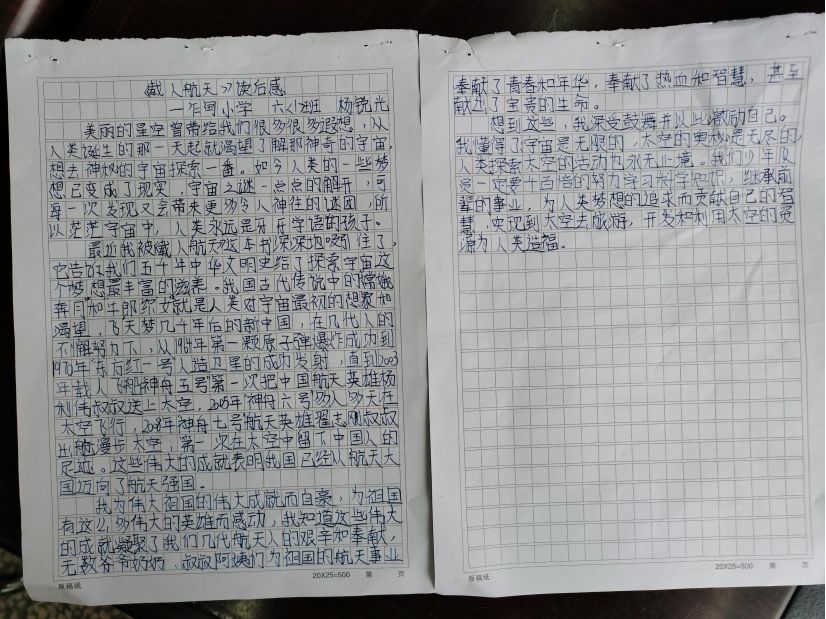 《载人航天》读后感
一乍回小学 六(1)班 杨锐光
美丽的星空曾带给我们很多很多遐想，从
人类诞生的那一天起就渴望了解那神奇的宇宙，
想去神秘的宇宙探索一番。如今人类的一些梦
想已变成了现实，宇宙之谜一点点的解开，可
每一次发现又会带来更多令人神往的谜团，所
以茫茫宇宙中，人类永远是牙牙学语的孩子。
最近我被《载人航天》这本书深深地吸引住了。
它告诉我们五千年中华文明史给了探索宇宙这
个梦想最丰富的滋养。我国古代传说中的"嫦娥
奔月"和"牛郎织女"就是人类对宇宙最初的想象和
渴望，飞天梦几千年后的新中国，在几代人的
不懈努力下，从1964年第一颗原子弹爆炸成功到
1970年"东方红一号"人造卫星的成功发射，直到2003
年载人"神舟五号"第一次把中国航天英雄杨
利伟叔叔送上太空，2005年神舟六号多人多天在
太空飞行，2008年神舟七号航天英雄翟志刚叔叔
出舱漫步太空，第一次在太空中留下中国人的
足迹。这些伟大的成就表明我国已经从航天大
国迈向了航天强国。
我为伟大祖国的伟大成就而自豪，为祖国
有这么多伟大的英雄而感动，我知道这些伟大
的成就凝聚了我们几代航天人的艰辛和奉献，
无数爷爷奶奶，叔叔阿姨们为祖国的航天事业
原稿纸 20X25=500 第 页
奉献了青春和年华，奉献了热血和智慧，甚至
献出了宝贵的生命。
想到这些，我深受鼓舞并以此激励自己。
我懂得了宇宙是无限的，太空的奥秘是无尽的，
人类探索太空的活动也永无止境。我们少年队
员一定要千百倍的努力学习科学知识，继承前
辈的事业，为人类梦想的追求而贡献自己的智
慧，实现到太空去旅游，开发和利用太空的资
源为人类造福。
原稿纸 20X25=500 第 页